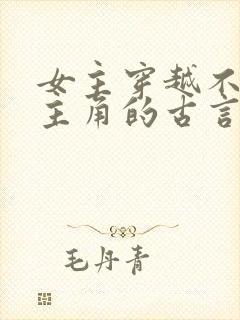 女主穿越不
主角的古言
毛丹青